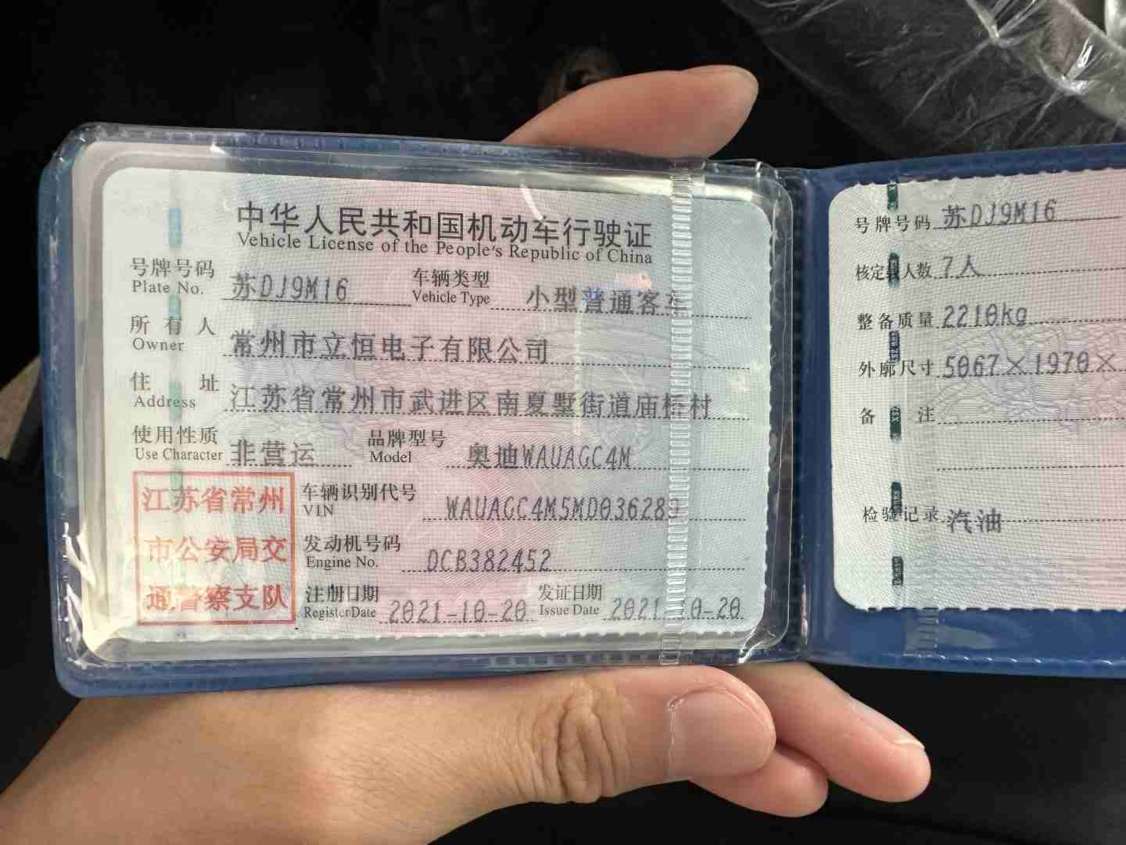 中华人民共和国机动车行驶证
Vehicle License of the People's Republic of China
号牌号码 苏DJ9M16 车辆类型 小型普通客车
Plate No. Vehicle Type
所有人 常州市立恒电子有限公司
Owner
住址 江苏省常州市武进区南夏墅街道庙桥村
Address
使用性质 非营运 品牌型号 奥迪WAUAGC4M
Use Character Model
江苏省常州
市公安局交
通警察支队
车辆识别代号 WAUAGC4M5MD036289
VIN
发动机号码 DCB382452
Engine No.
注册日期 2021-10-20 发证日期 2021-10-20
Register Date Issue Date
号牌号码 苏DJ9M16
核定载人数 7人
整备质量 2210kg
外廓尺寸 5067×1970×
备注
检验记录 汽油